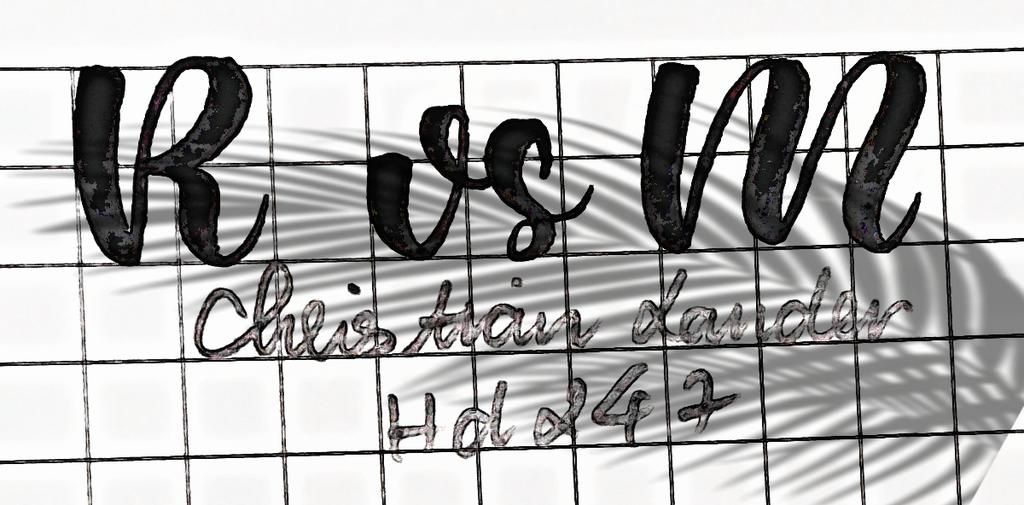 R vs M
Christian Lander
Hd 247